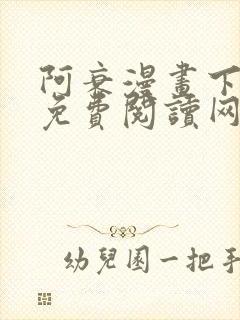 阿衰漫畫下
免費閱讀网
幼兒園一把手